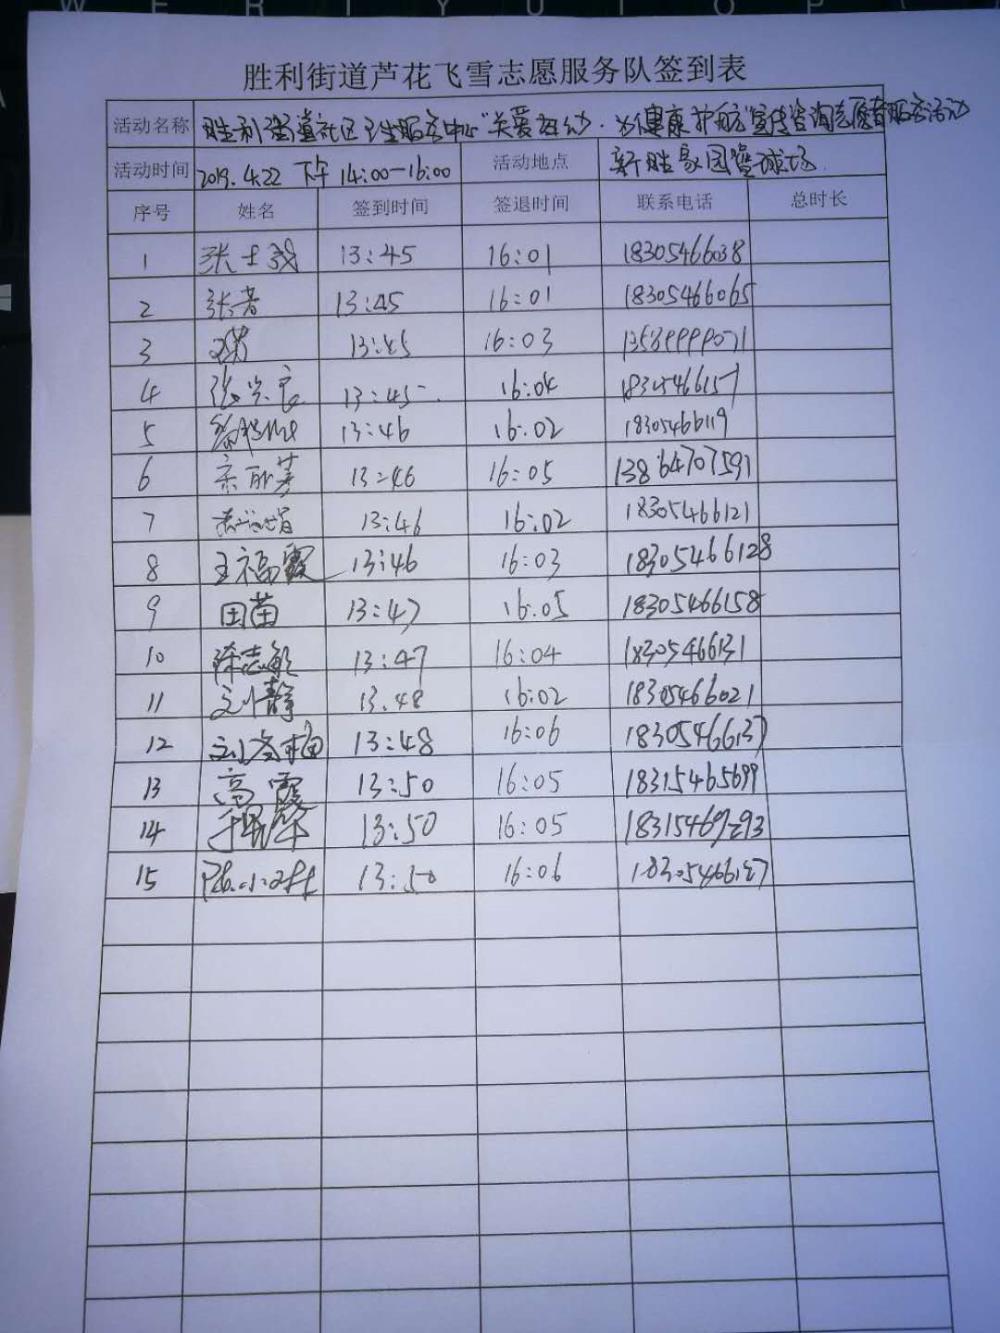 胜利街道芦花飞雪志愿服务队签到表
活动名称 胜利街道社区卫生服务中心"关爱妇幼,为健康护航"宣传咨询志愿者服务活动
活动时间 2019.4.22 下午 14:00-16:00 活动地点 新胜家园篮球场
序号 姓名 签到时间 签退时间 联系电话 总时长
1 张士誠 13:45 16:01 18305466038
2 张青 13:45 16:01 18305466065
3 13:45 16:03
4 13:45 16:04 18305466157
5 13:46 16:02 18305466119
6 13:46 16:05 13864707591
7 13:46 16:02 18305466121
8 王福霞 13:46 16:03 18305466128
9 田苗 13:47 16:05 18305466158
10 陈志敏 13:47 16:04 18305466131
11 刘静 13:48 16:02 18305466021
12 刘冬梅 13:48 16:06 18305466137
13 高霞 13:50 16:05 18315465699
14 13:50 16:05 18315469293
15 13:50 16:06